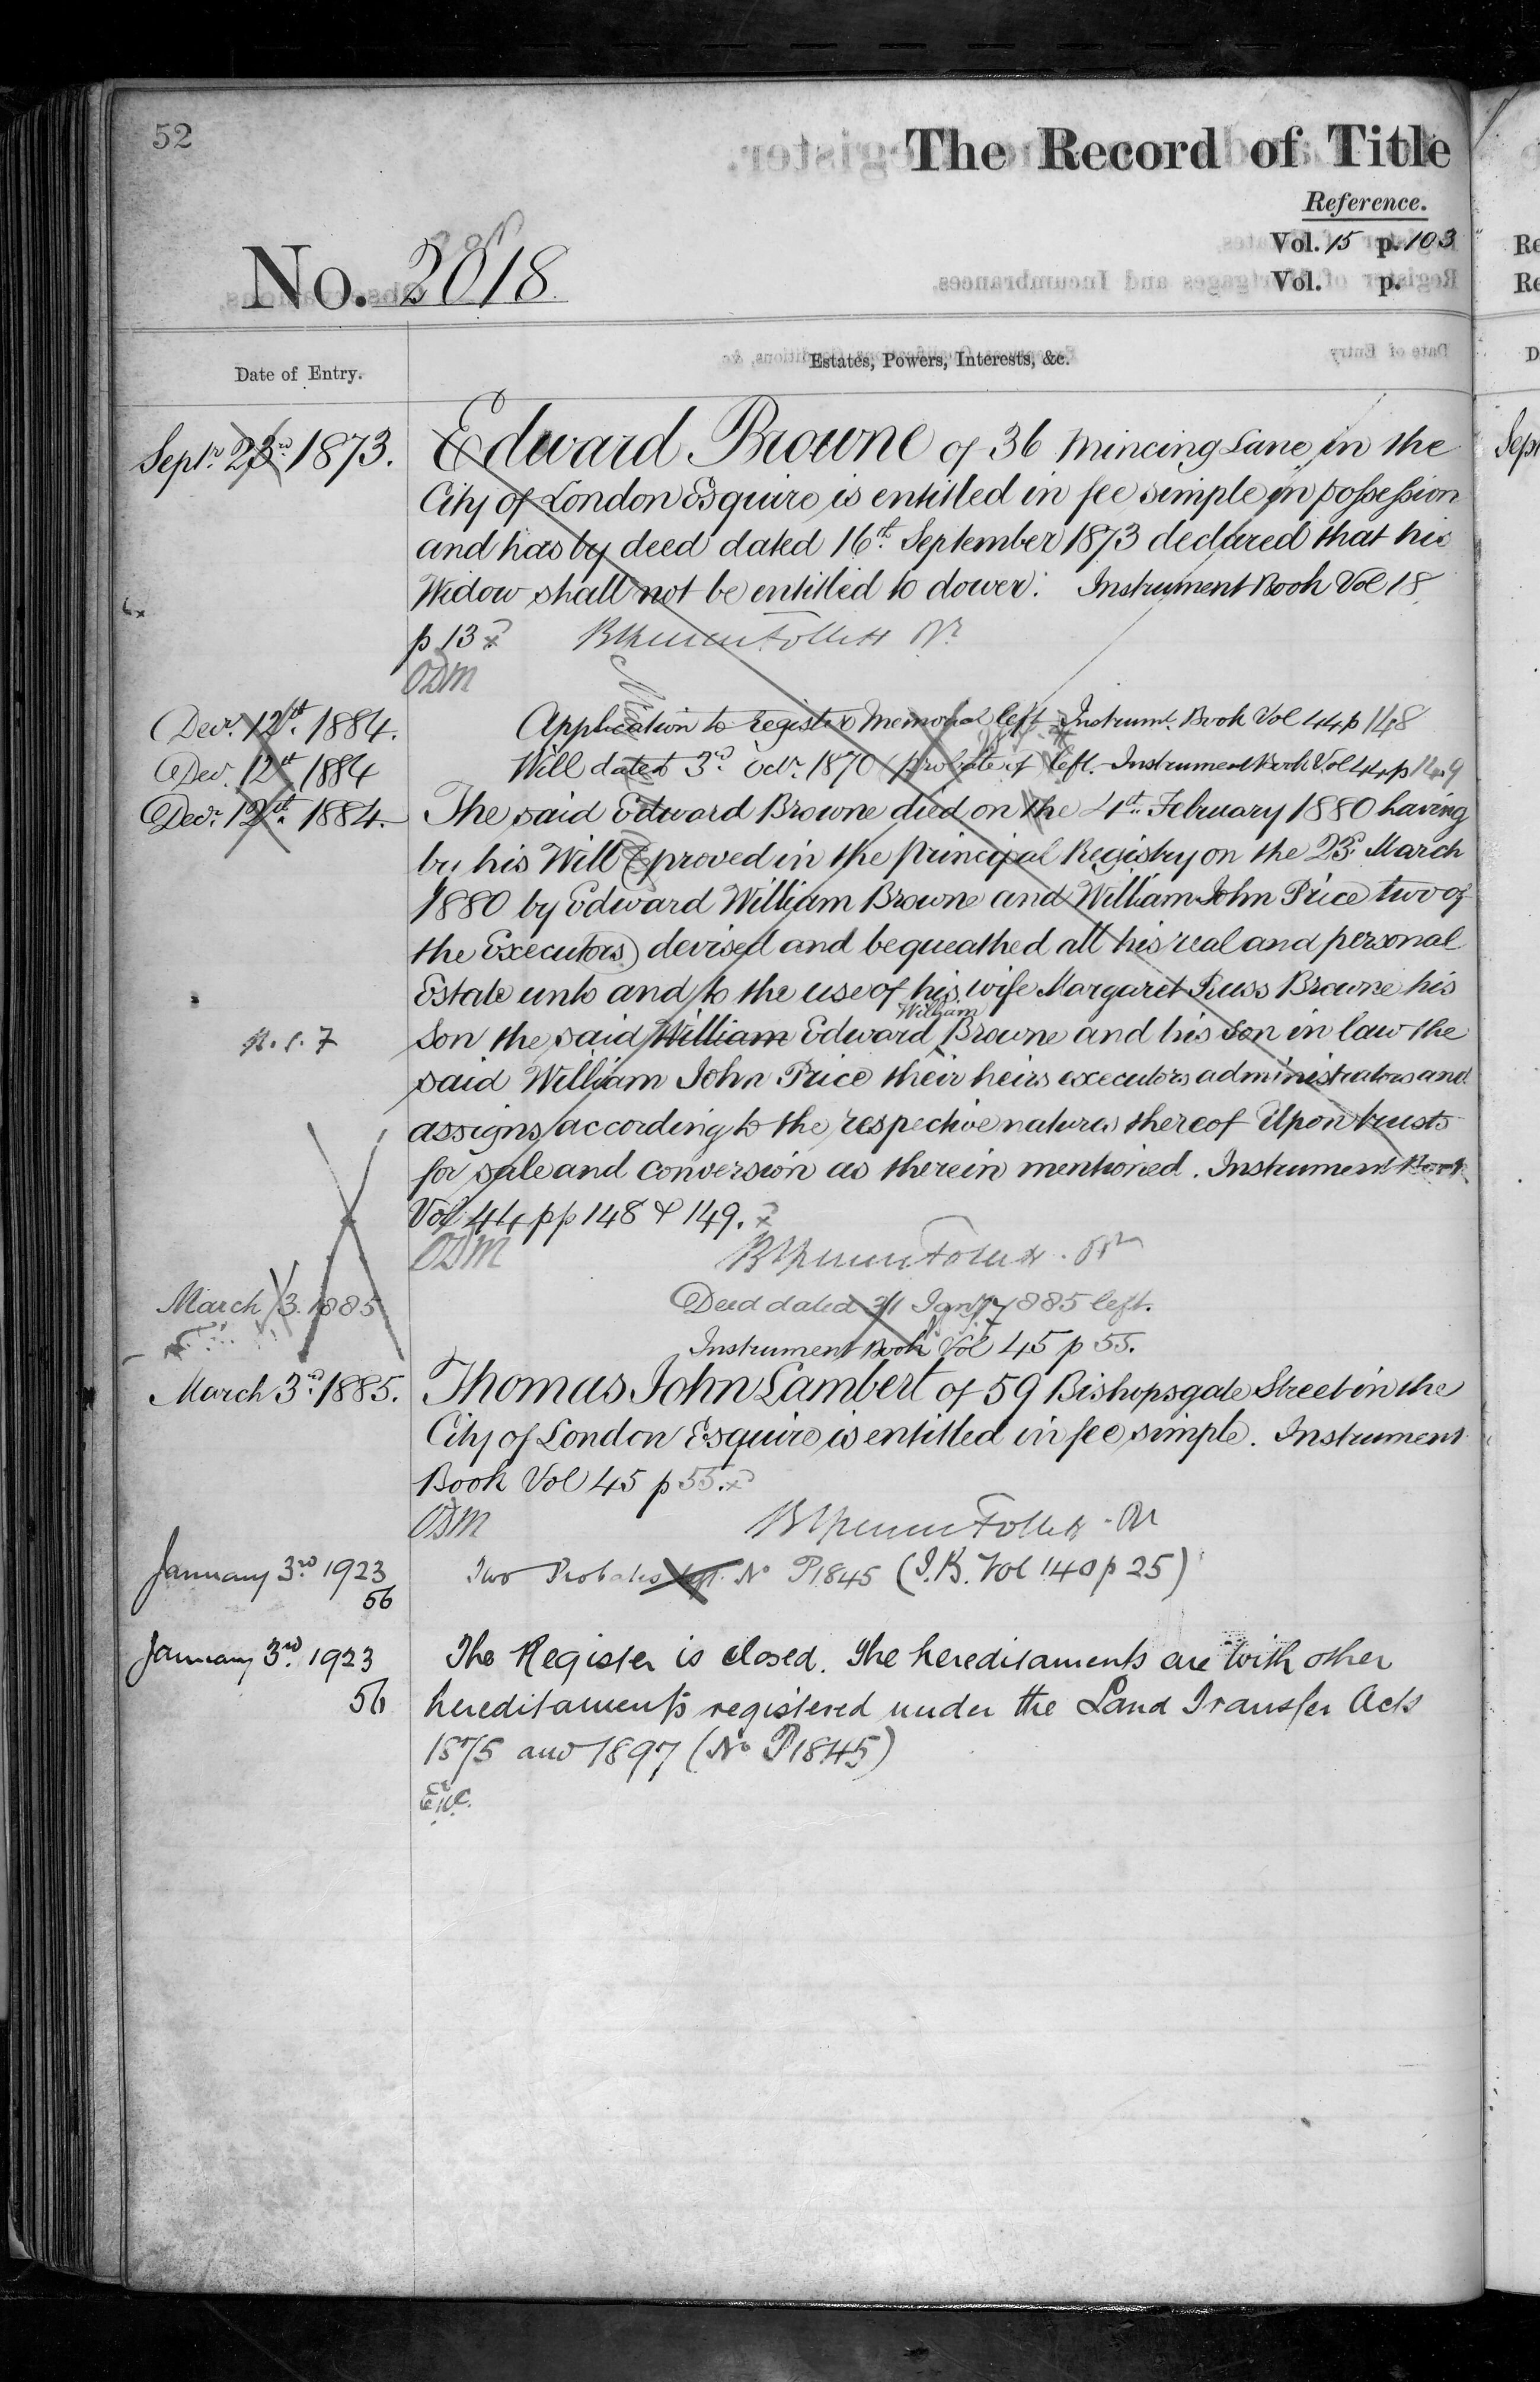 52
The Record of Title
Reference.
Vol. 15 p. 103
Vol. p.
No. 2018
Date of Entry.
Estates, Powers, Interests, &c.
Septr. 23rd 1873.
Edward Browne of 36 Mincing Lane in the
City of London Esquire is entitled in fee simple in possession
and has by deed dated 16th September 1873 declared that his
Widow shall not be entitled to dower. Instrument Book Vol 18
p 13
ODM
Decr. 12th. 1884. Application to register Memorial left Instrumt. Book Vol 44 p 148
Decr. 12th 1884 Will dated 3rd Octr. 1870 (probate of) left. Instrument Book Vol 44 p 149
Decr. 12th. 1884. The said Edward Browne died on the 4th. February 1880 having
by his Will (proved in the principal Registry on the 23rd March
1880 by Edward William Browne and William John Price two of
the Executors) devised and bequeathed all his real and personal
Estate unto and to the use of his wife Margaret Russ Browne his
William
Son the said William Edward Browne and his son in law the
said William John Price their heirs executors administrators and
assigns according to the respective natures thereof Upon trusts
for sale and conversion as therein mentioned. Instrument Book
Vol 44 pp 148 & 149.
ODM
March 3. 1885 Deed dated 31 Jany 1885 left.
Instrument Book Vol 45 p 55.
March 3rd. 1885. Thomas John Lambert of 59 Bishopsgate Street in the
City of London Esquire is entitled in fee simple. Instrument
Book Vol 45 p 55.
ODM
January 3rd 1923 Two Probates left. No P1845 (I.B. Vol 140 p 25)
56
January 3rd. 1923 The Register is closed. The hereditaments are with other
56 hereditaments registered under the Land Transfer Acts
1875 and 1897 (No P1845)